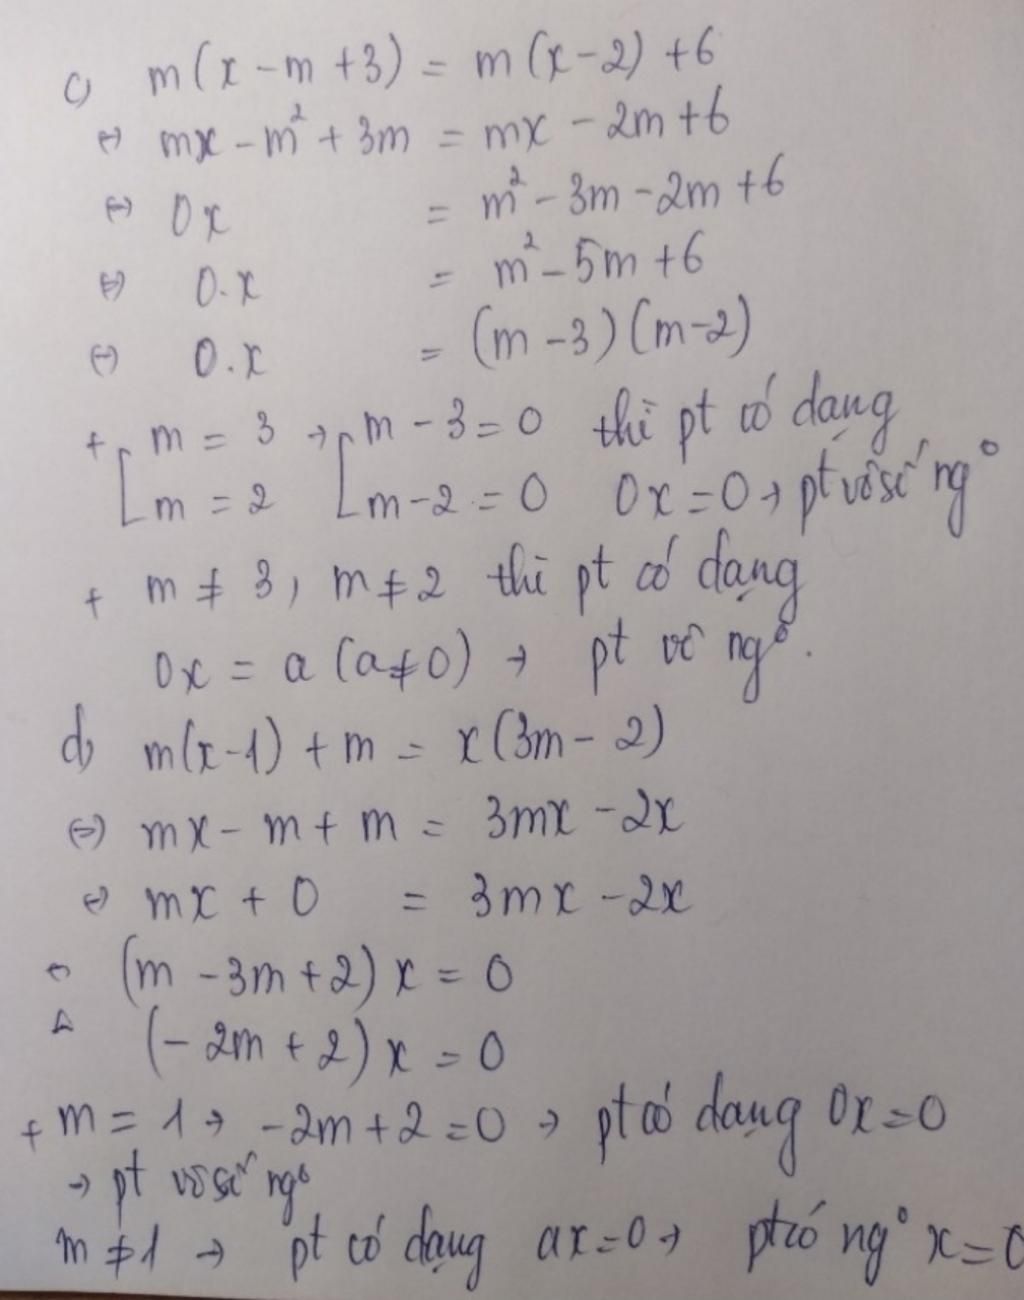 c) m(x - m + 3) = m(x - 2) + 6
⇔ mx - m² + 3m = mx - 2m + 6
⇔ 0x = m² - 3m - 2m + 6
⇔ 0.x = m² - 5m + 6
⇔ 0.x = (m - 3)(m - 2)
+ [ m = 3 → [ m - 3 = 0 thì pt có dạng
m = 2 m - 2 = 0 0x = 0 → pt vô số ng°
+ m ≠ 3, m ≠ 2 thì pt có dạng
0x = a (a ≠ 0) → pt vô ng°.
d) m(x - 1) + m = x(3m - 2)
⇔ mx - m + m = 3mx - 2x
⇔ mx + 0 = 3mx - 2x
⇔ (m - 3m + 2) x = 0
⇔ (- 2m + 2) x = 0
+ m = 1 → -2m + 2 = 0 → pt có dạng 0x = 0
→ pt vô số ng°
m ≠ 1 → pt có dạng ax = 0 → pt có ng° x = 0